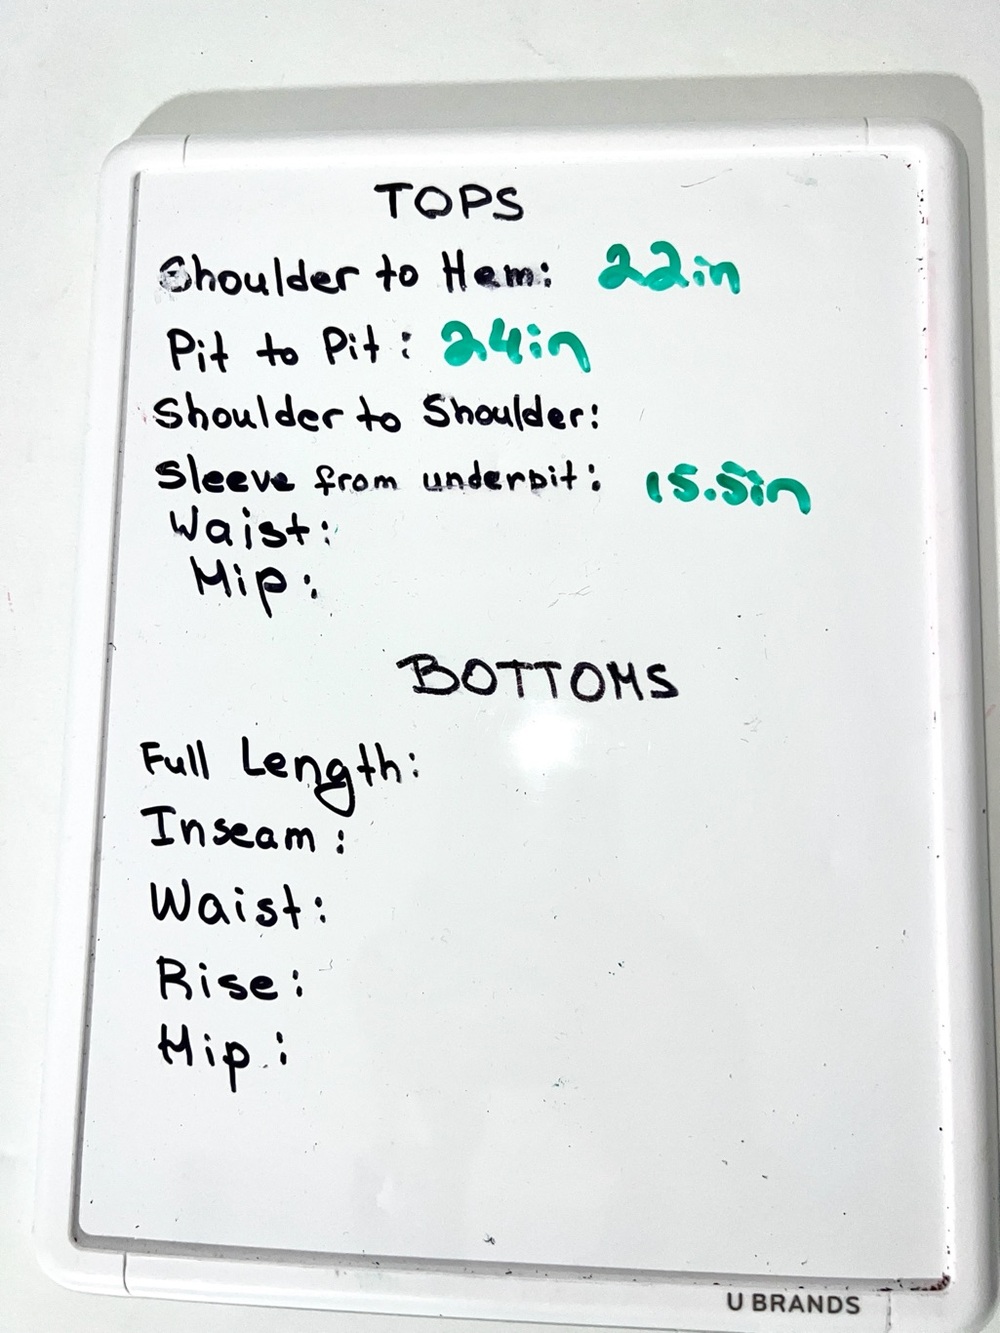 TOPS
Shoulder to Hem: 22in
Pit to Pit: 24in
Shoulder to Shoulder:
Sleeve from underpit: 15.5in
Waist:
Hip:
BOTTOMS
Full Length:
Inseam:
Waist:
Rise:
Hip:
U BRANDS